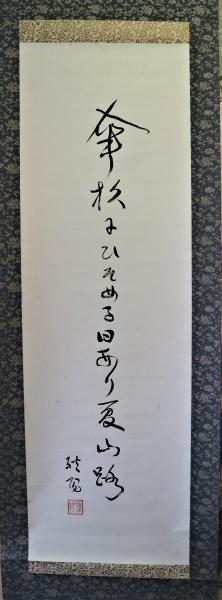 傘杉にひそめる日あり夏山路
耿陽